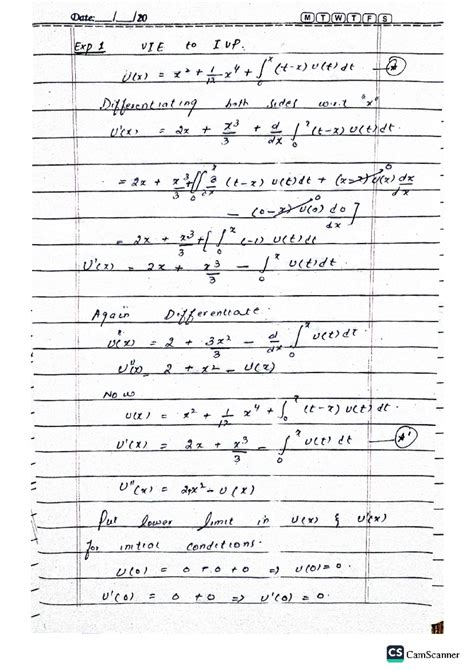 Date:___/___/20 M T W T F S
Exp 1 VIE to IVP.
U(x) = x² + 1/12 x⁴ + ∫₀ˣ (t-x) u(t) dt — *
Differentiating both sides w.r.t "x"
U'(x) = 2x + x³/3 + d/dx ∫₀ˣ (t-x) u(t) dt.
= 2x + x³/3 + [∫₀ˣ ∂/∂x (t-x) u(t) dt + (x-x) u(x) dx/dx 0
- (0-x) u(0) d0/dx 0]
= 2x + x³/3 + [∫₀ˣ (-1) u(t) dt.
U'(x) = 2x + x³/3 - ∫₀ˣ u(t) dt.
Again Differentiate.
U''(x) = 2 + 3x²/3 - d/dx ∫₀ˣ u(t) dt.
U''(x) = 2 + x² - U(x)
Now
U(x) = x² + 1/12 x⁴ + ∫₀ˣ (t-x) u(t) dt
U'(x) = 2x + x³/3 - ∫₀ˣ u(t) dt — *'
U''(x) = 2+x² - U(x)
Put lower limit in U(x) & U'(x)
for initial conditions.
U(0) = 0 + 0 + 0 => U(0) = 0.
U'(0) = 0 + 0 => U'(0) = 0.
CS CamScanner